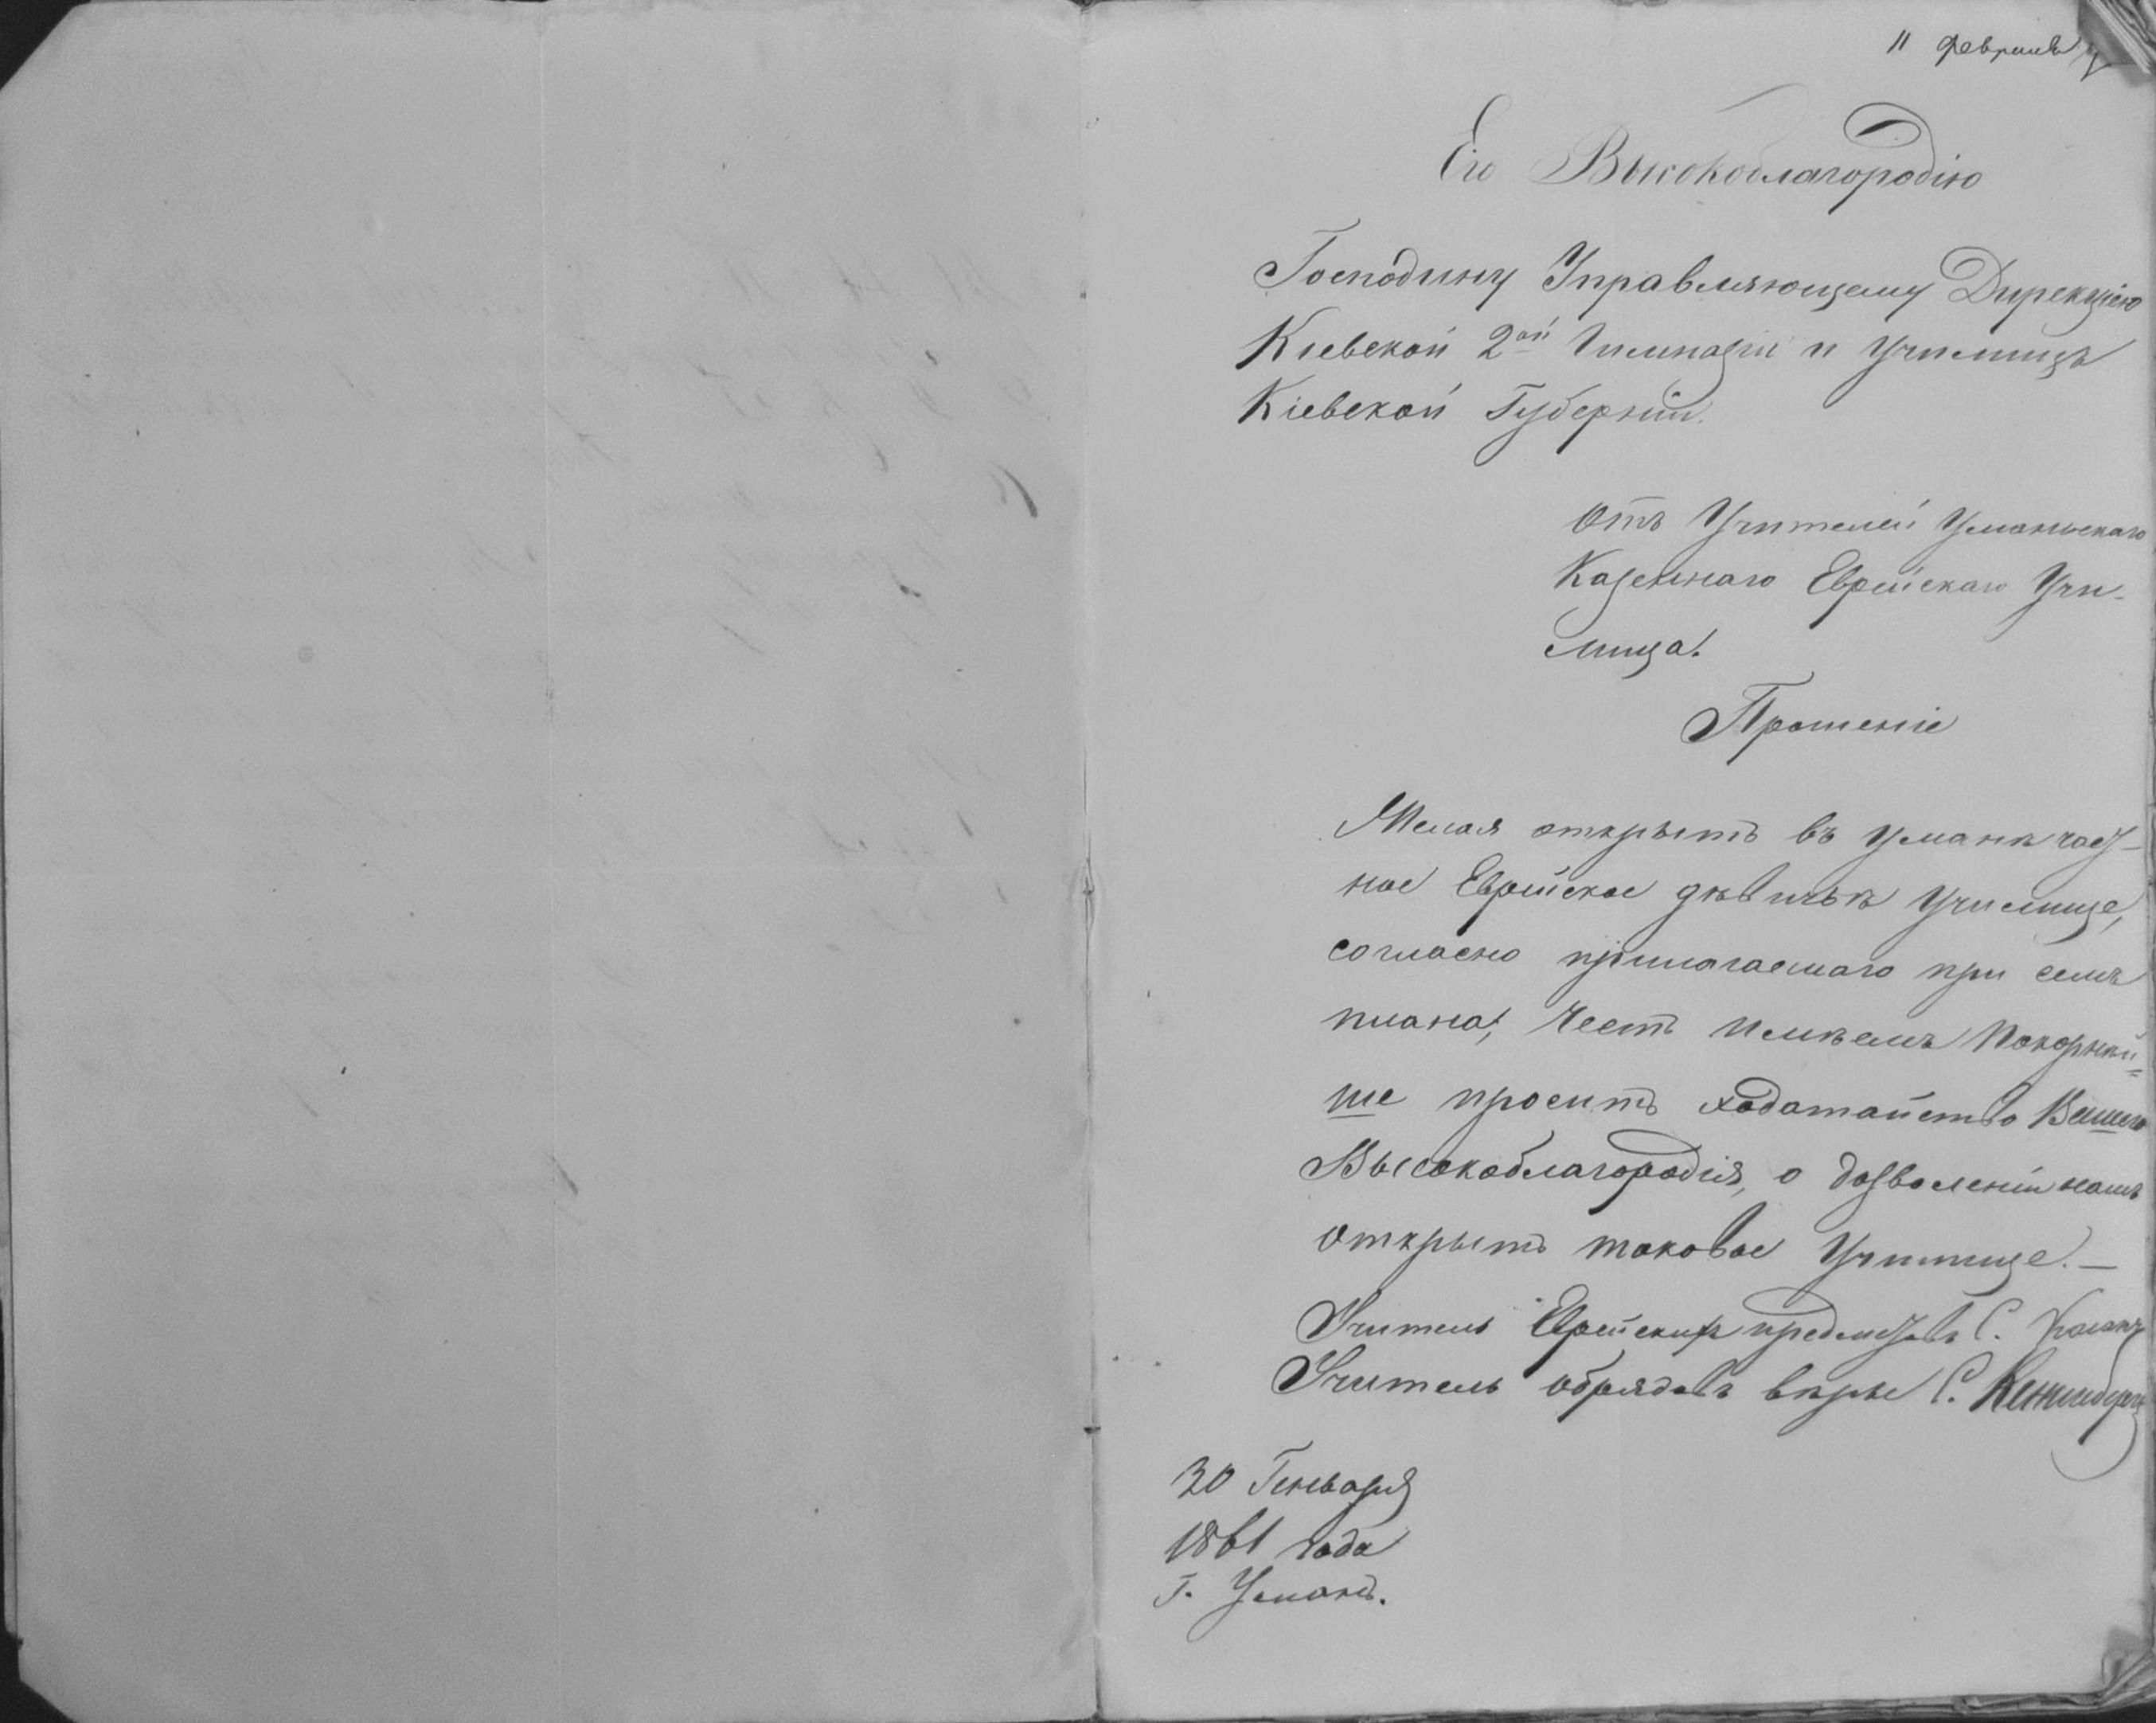 11 февраля
Его Высокоблагородію
Господину Управляющему Дирекціею
Кіевской 2ой Гимназіи и Училищъ
Кіевской Губерніи.
Отъ Учителей Уманьскаго
Казеннаго Еврейскаго Учи-
лища.
Прошеніе
Желая открыть въ Умани част-
ное Еврейское дѣвичье Училище,
согласно прилагаемаго при семъ
плана, честь имѣемъ покорнѣй-
ше просить ходатайство Вашего
Высокоблагородія, о дозволеніи намъ
открыть таковое Училище. —
Учитель Еврейскихъ предметовъ С.
Учитель обрядовъ вѣры С.
30 Генваря
1861 года
Г. Умань.